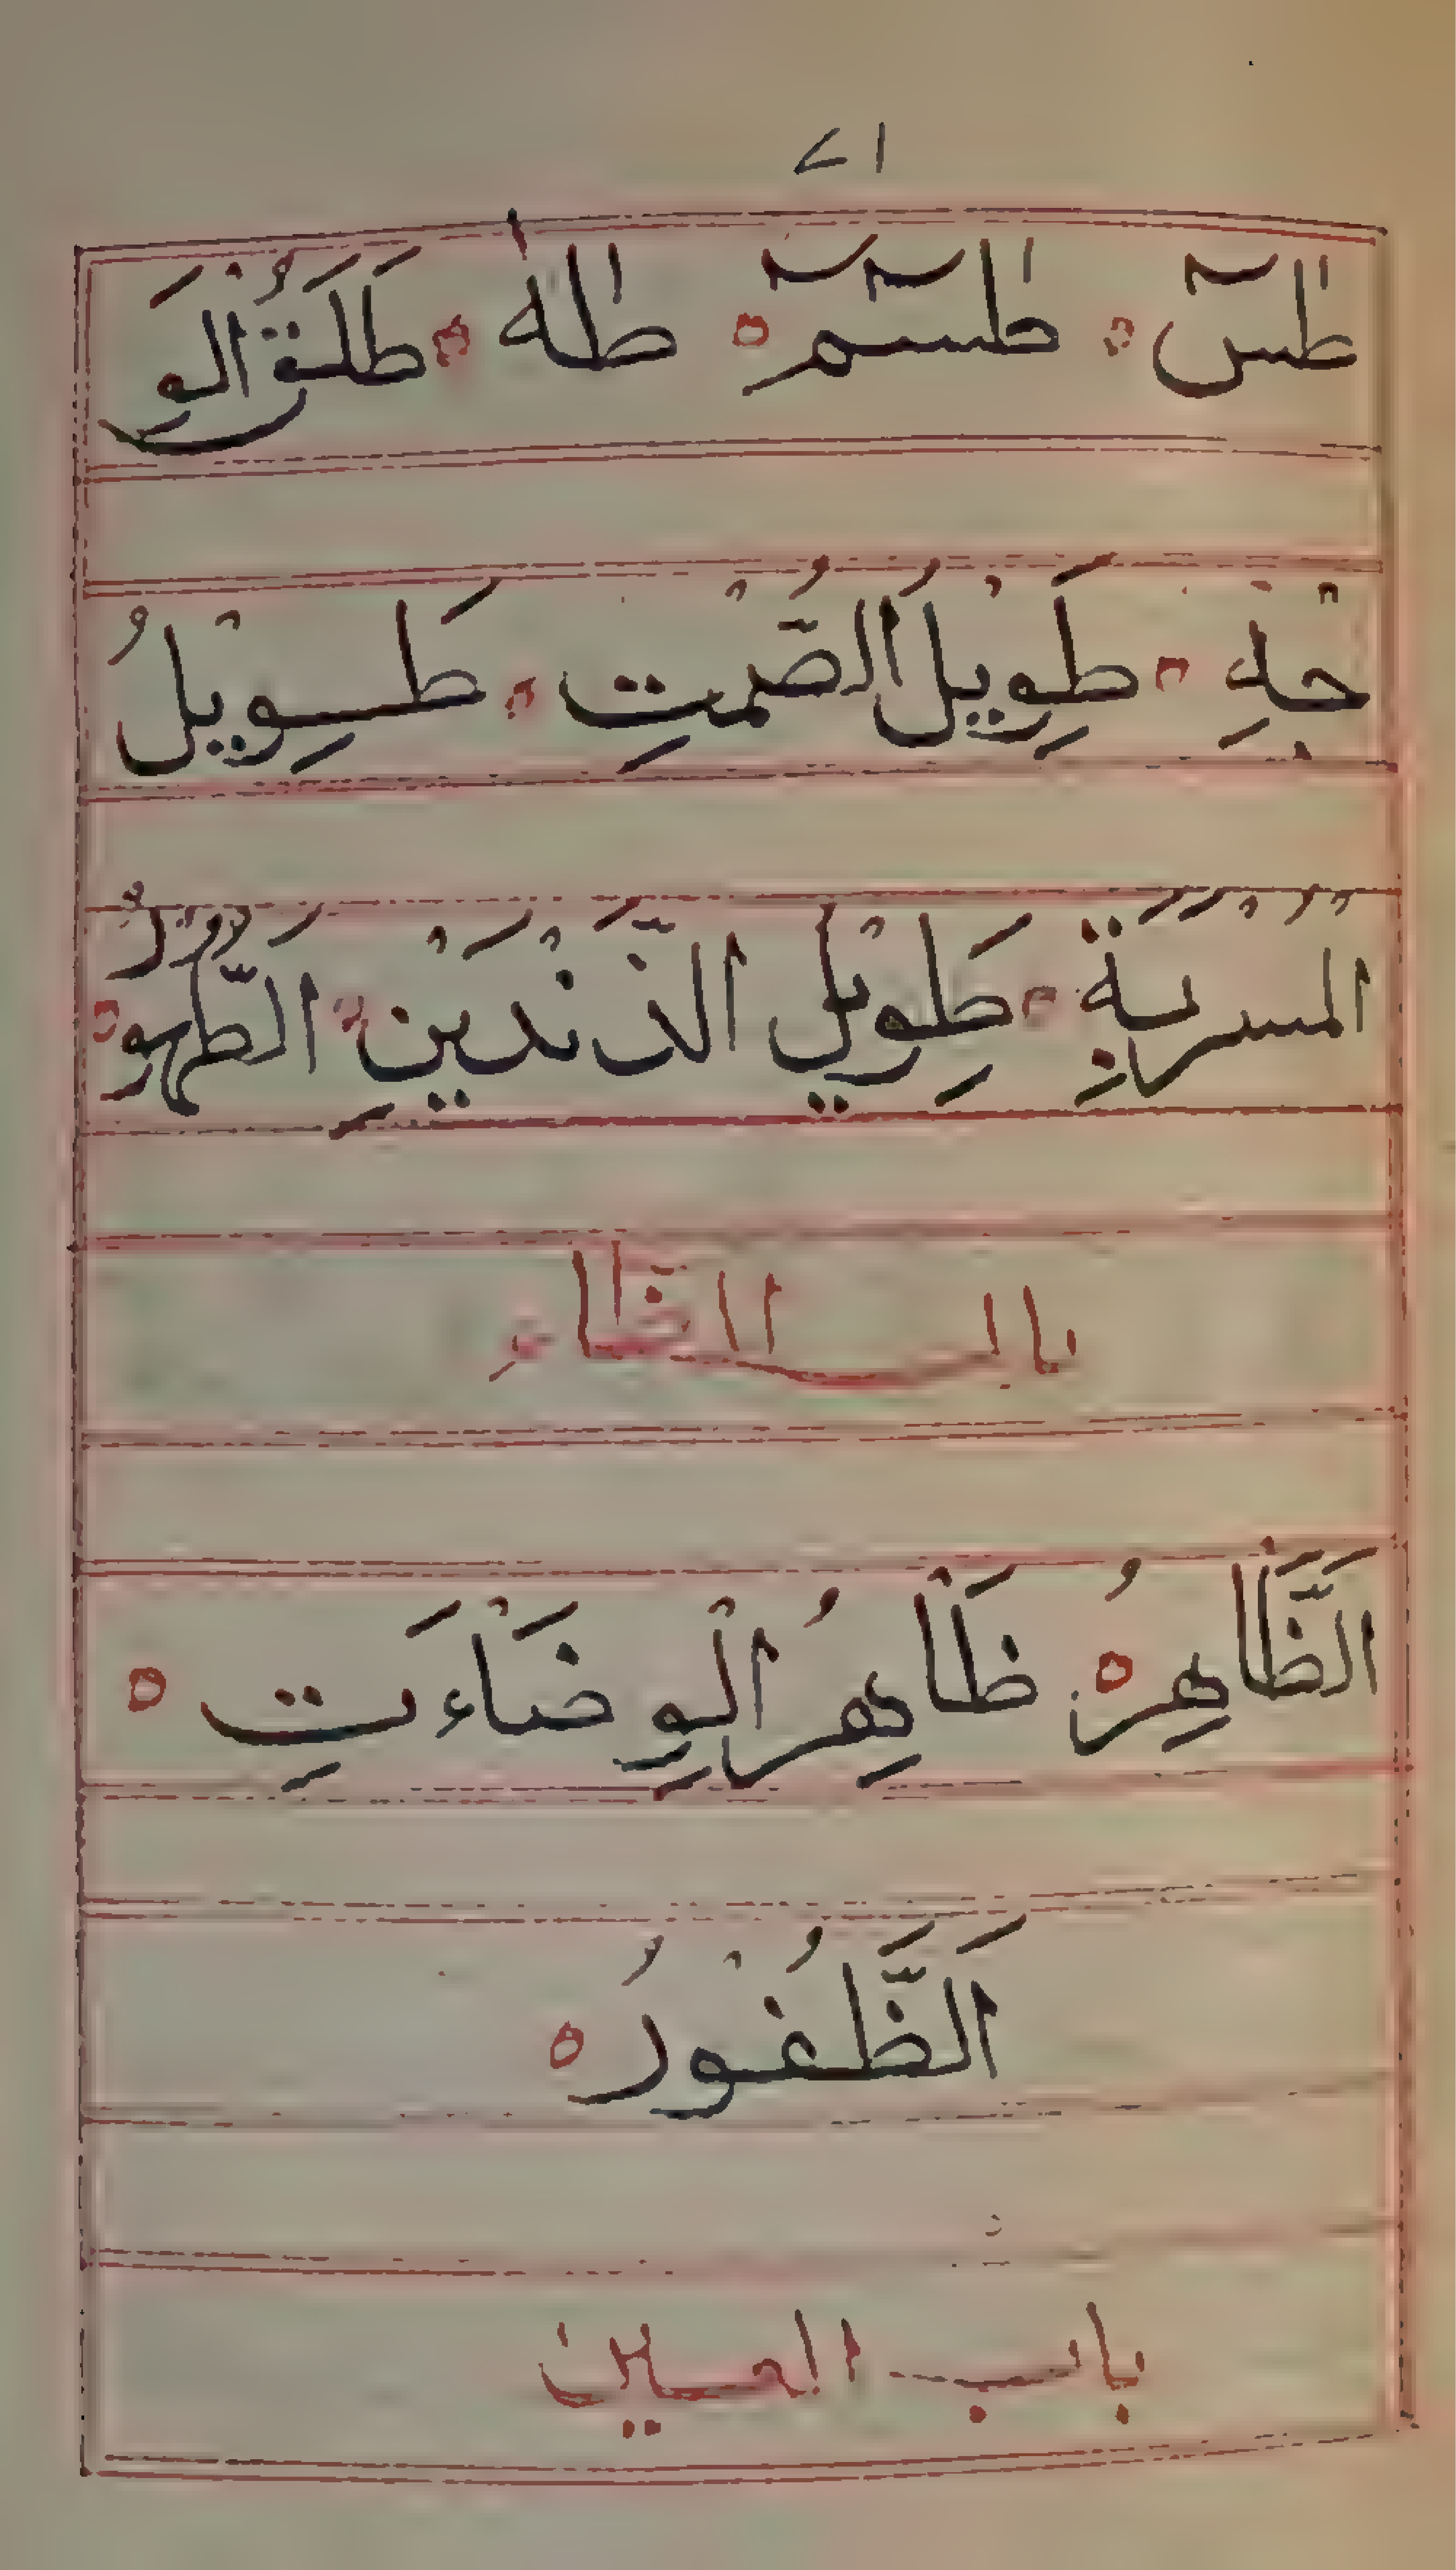 اے
طٰسٓ ۝ طٰسٓمٓ ۝ طٰهٰ ۝ طَلَقُ الْوَ
جْهِ ۝ طَوِيْلُ الصُّمْتِ ۝ طَوِيْلُ
الْمُسْرَبَةِ ۝ طَوِيْلُ الذَّنْدَيْنِ ۝ الطَّهُوْرُ ۝
باب الظاء
الَظَّاهِرُ ۝ ظَاهِرُ الْوِضَاءَتِ ۝
اَلظَّفُوْرُ ۝
باب العين